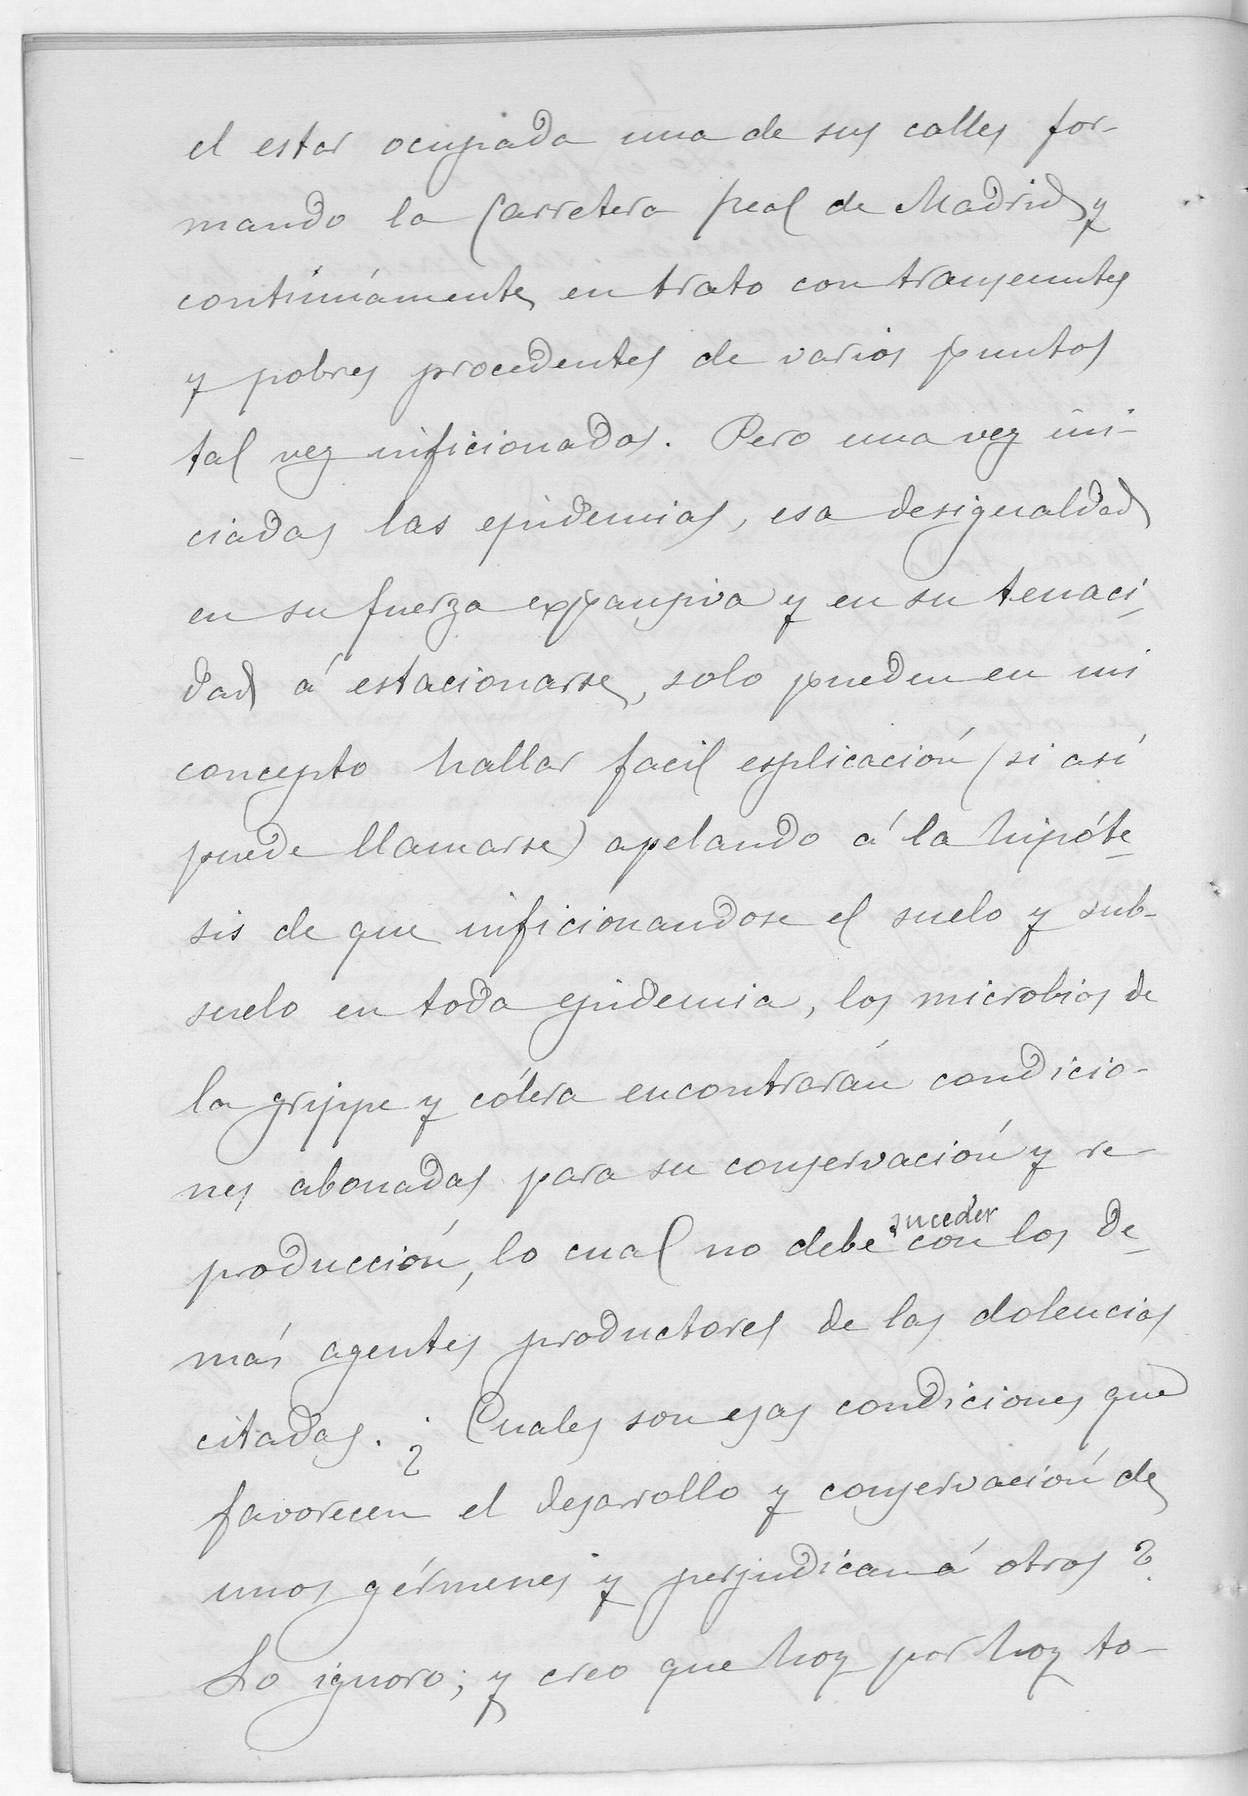 el estar ocupada una de sus calles for-
mando la Carretera Real de Madrid y
contínuamente en trato con transeuntes
y pobres procedentes de varios puntos
tal vez inficionados. Pero una vez ini-
ciadas las epidemias, esa desigualdad
en su fuerza expansiva y en su tenaci-
dad á estacionarse, solo pueden en mi
concepto hallar facil esplicación (si así
puede llamarse) apelando á la hipóte-
sis de que inficionandose el suelo y sub-
suelo en toda epidemia, los microbios de
la grippe y cólera encontrarán condicio-
nes abonadas para su conservación y re-
producción, lo cual no debe suceder con los de-
más agentes productores de las dolencias
citadas. ¿Cuales son esas condiciones que
favorecen el desarrollo y conservación de
unos gérmenes y perjudican á otros?
Lo ignoro; y creo que hoy por hoy to-